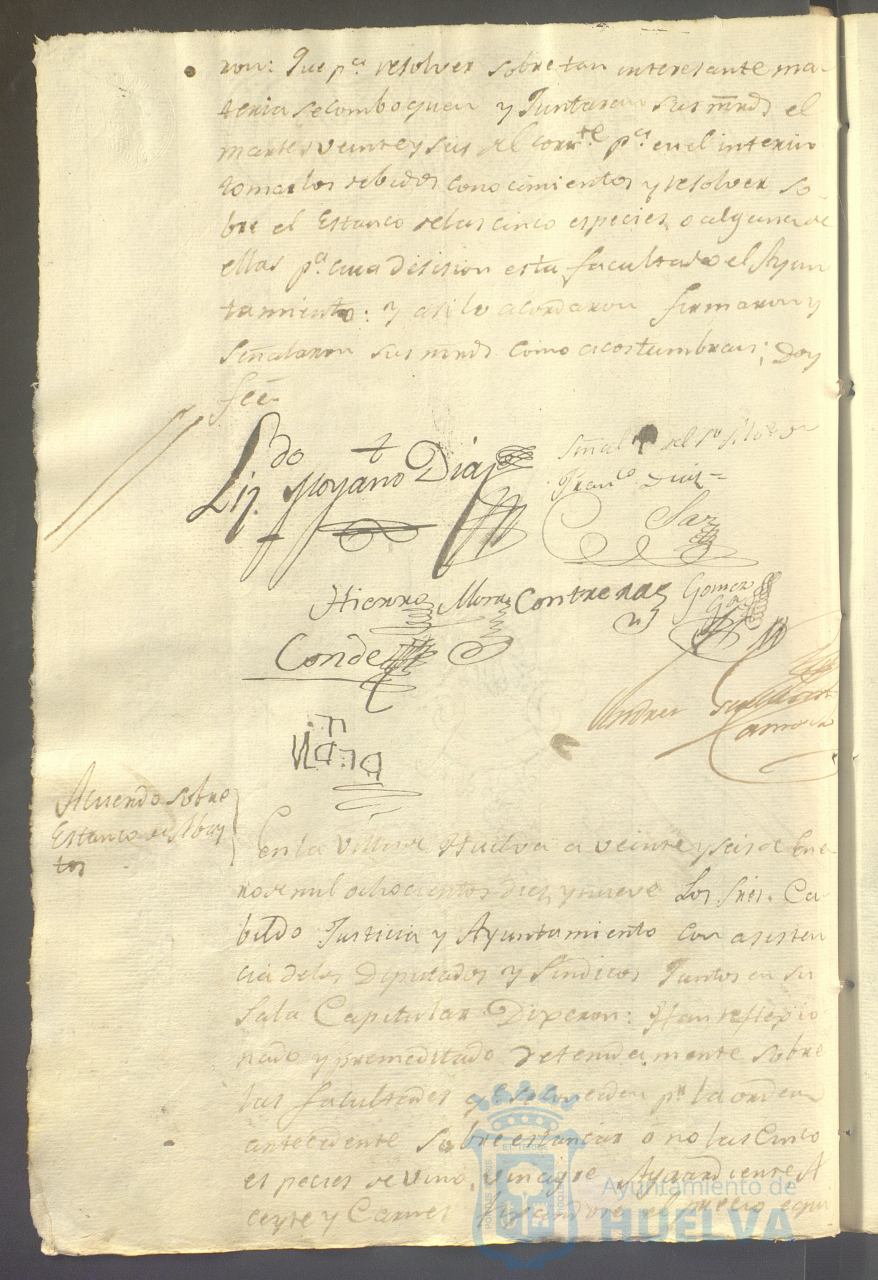 ron: Que pª. resolver sobre tan interesante ma-
teria se comboquen y Juntaran sus mrds el
martes veinte y seis del corrte. pª. en el interin
tomar los debidos conocimientos y resolver so-
bre el Estanco de las cinco especies, o alguna de
ellas pª. cuia decision esta facultado el Ayun
tamiento: y asi lo acordaron firmaron y
Señalaron sus mrds como acostumbran; Doy
fee-
Lizdo. Moyano Diaz
Señal del Sr
Franco. Diaz=
Saz
Hierro Mora Contreras Gomez
Conde
Andres
Zamora
Viana
Acuerdo sobre
Estanco de Abas
tos
En la Villa de Huelva a veinte y seis de Ene
ro de mil ochocientos diez y nueve Los Sres. Ca-
bildo Justicia y Ayuntamiento con asisten
cia de los Diputados y Sindicos Juntos en su
Sala Capitular Dixeron: Han reflexio
nado y premeditado detenidamente sobre
las facultades qe. se conceden pr. la orden
antecedente sobre estancar o no las Cinco
especies de vino, vinagre, Aguardiente, A
ceyte y Carnes el precio equi
Ayuntamiento de
HUELVA